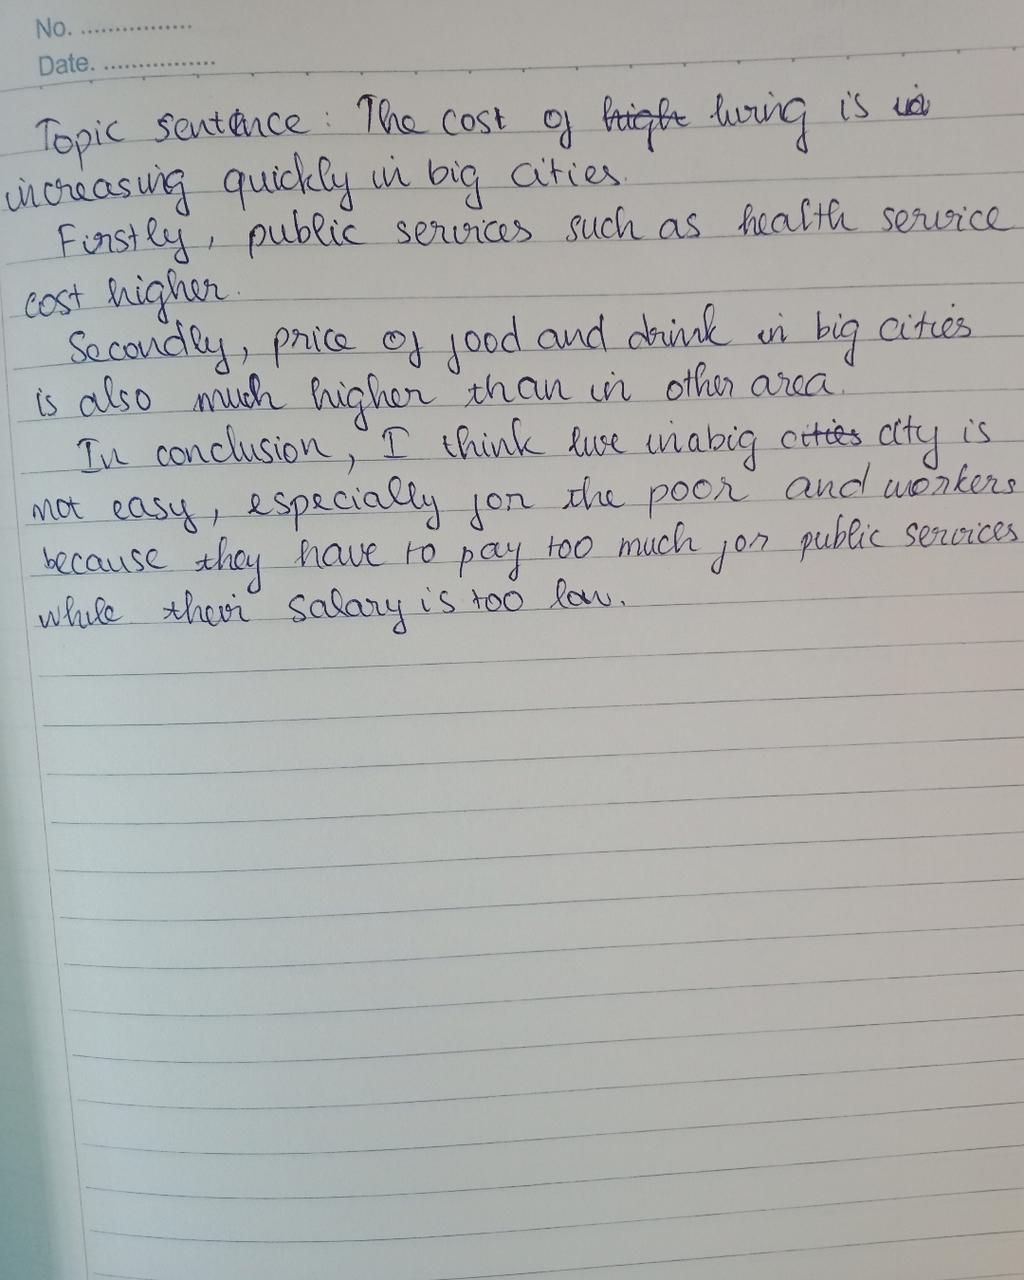 No. ................
Date. ................
Topic sentence: The cost of hight living is in
increasing quickly in big cities.
Firstly, public services such as health service
cost higher.
Secondly, price of food and drink in big cities
is also much higher than in other area.
In conclusion, I think live in a big cities city is
not easy, especially for the poor and workers
because they have to pay too much for public services
while their salary is too low.